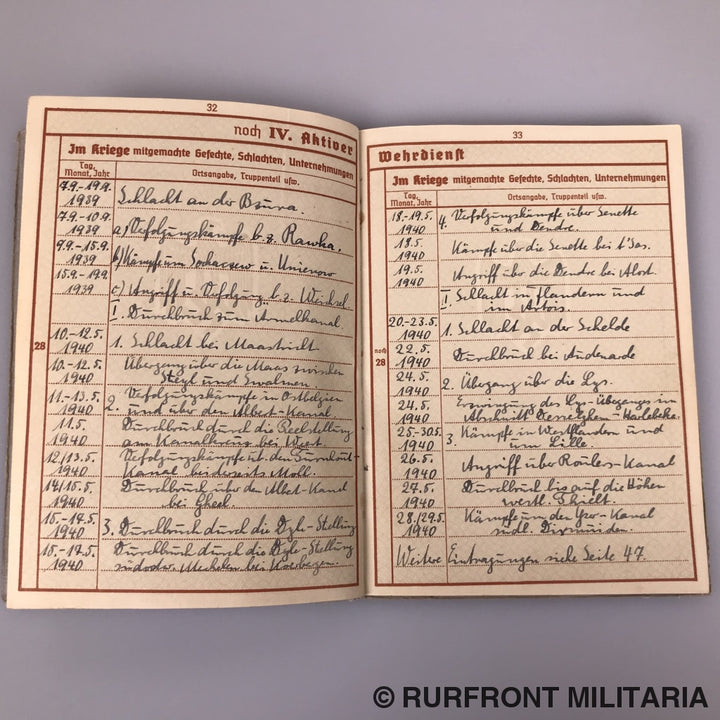 32
noch IV. Aktiver
Im Kriege mitgemachte Gefechte, Schlachten, Unternehmungen
Tag, Monat, Jahr
Ortsangabe, Truppenteil usw.
7.9.-19.9. 1939 Schlacht an der Bsura.
7.9.-10.9. 1939 a) Verfolgungskämpfe b. z. Rawka.
9.9.-15.9. 1939 b) Kämpfe um Sochaczew u.
15.9.-19.9. 1939 c) Angriff u. Verfolgung b. z. Weichsel.
I. Durchbruch zum Armelkanal
28
10.-12.5. 1940 1. Schlacht bei Maastricht
10.-12.5. 1940 Übergang über die Maas zwischen
Steyl und Swalmen.
11.-13.5. 1940 2. Verfolgungskämpfe in Ostbelgien
und über den Albert-Kanal
11.5. 1940 Durchbruch durch die Peelstellung
am Kanalkreuz bei Weert.
12./13.5. 1940 Verfolgungskämpfe üb. den Turnhout-
Kanal beiderseits Moll.
14./15.5. 1940 Durchbruch über den Albert-Kanal
bei Gheel.
15.-17.5. 1940 3. Durchbruch durch die Dyle-Stellung
15.-17.5. 1940 Durchbruch durch die Dyle-Stellung
südostw. Mecheln bei
33
Wehrdienst
Im Kriege mitgemachte Gefechte, Schlachten, Unternehmungen
Tag, Monat, Jahr
Ortsangabe, Truppenteil usw.
18.-19.5. 1940 4. Verfolgungskämpfe über Senette
und Dendre.
18.5. 1940 Kämpfe über die Senette bei
19.5. 1940 Angriff über die Dendre bei Alost.
II. Schlacht in Flandern und
im Artois.
20.-23.5. 1940 1. Schlacht an der Schelde
noch 28
22.5. 1940 Durchbruch bei Audenarde
24.5. 1940 2. Übergang über die Lys.
24.5. 1940 Erzwingung des Lys-Übergangs im
Abschnitt Desselghem-Harlebeke.
25.-30.5. 1940 3. Kämpfe in Westflandern und
um Lille
26.5. 1940 Angriff über Roulers-Kanal
27.5. 1940 Durchbruch bis auf die Höhen
westl. Thielt.
28./29.5. 1940 Kämpfe um den Yser-Kanal
südl. Dixmuiden.
Weitere Eintragungen siehe Seite 47
© RURFRONT MILITARIA